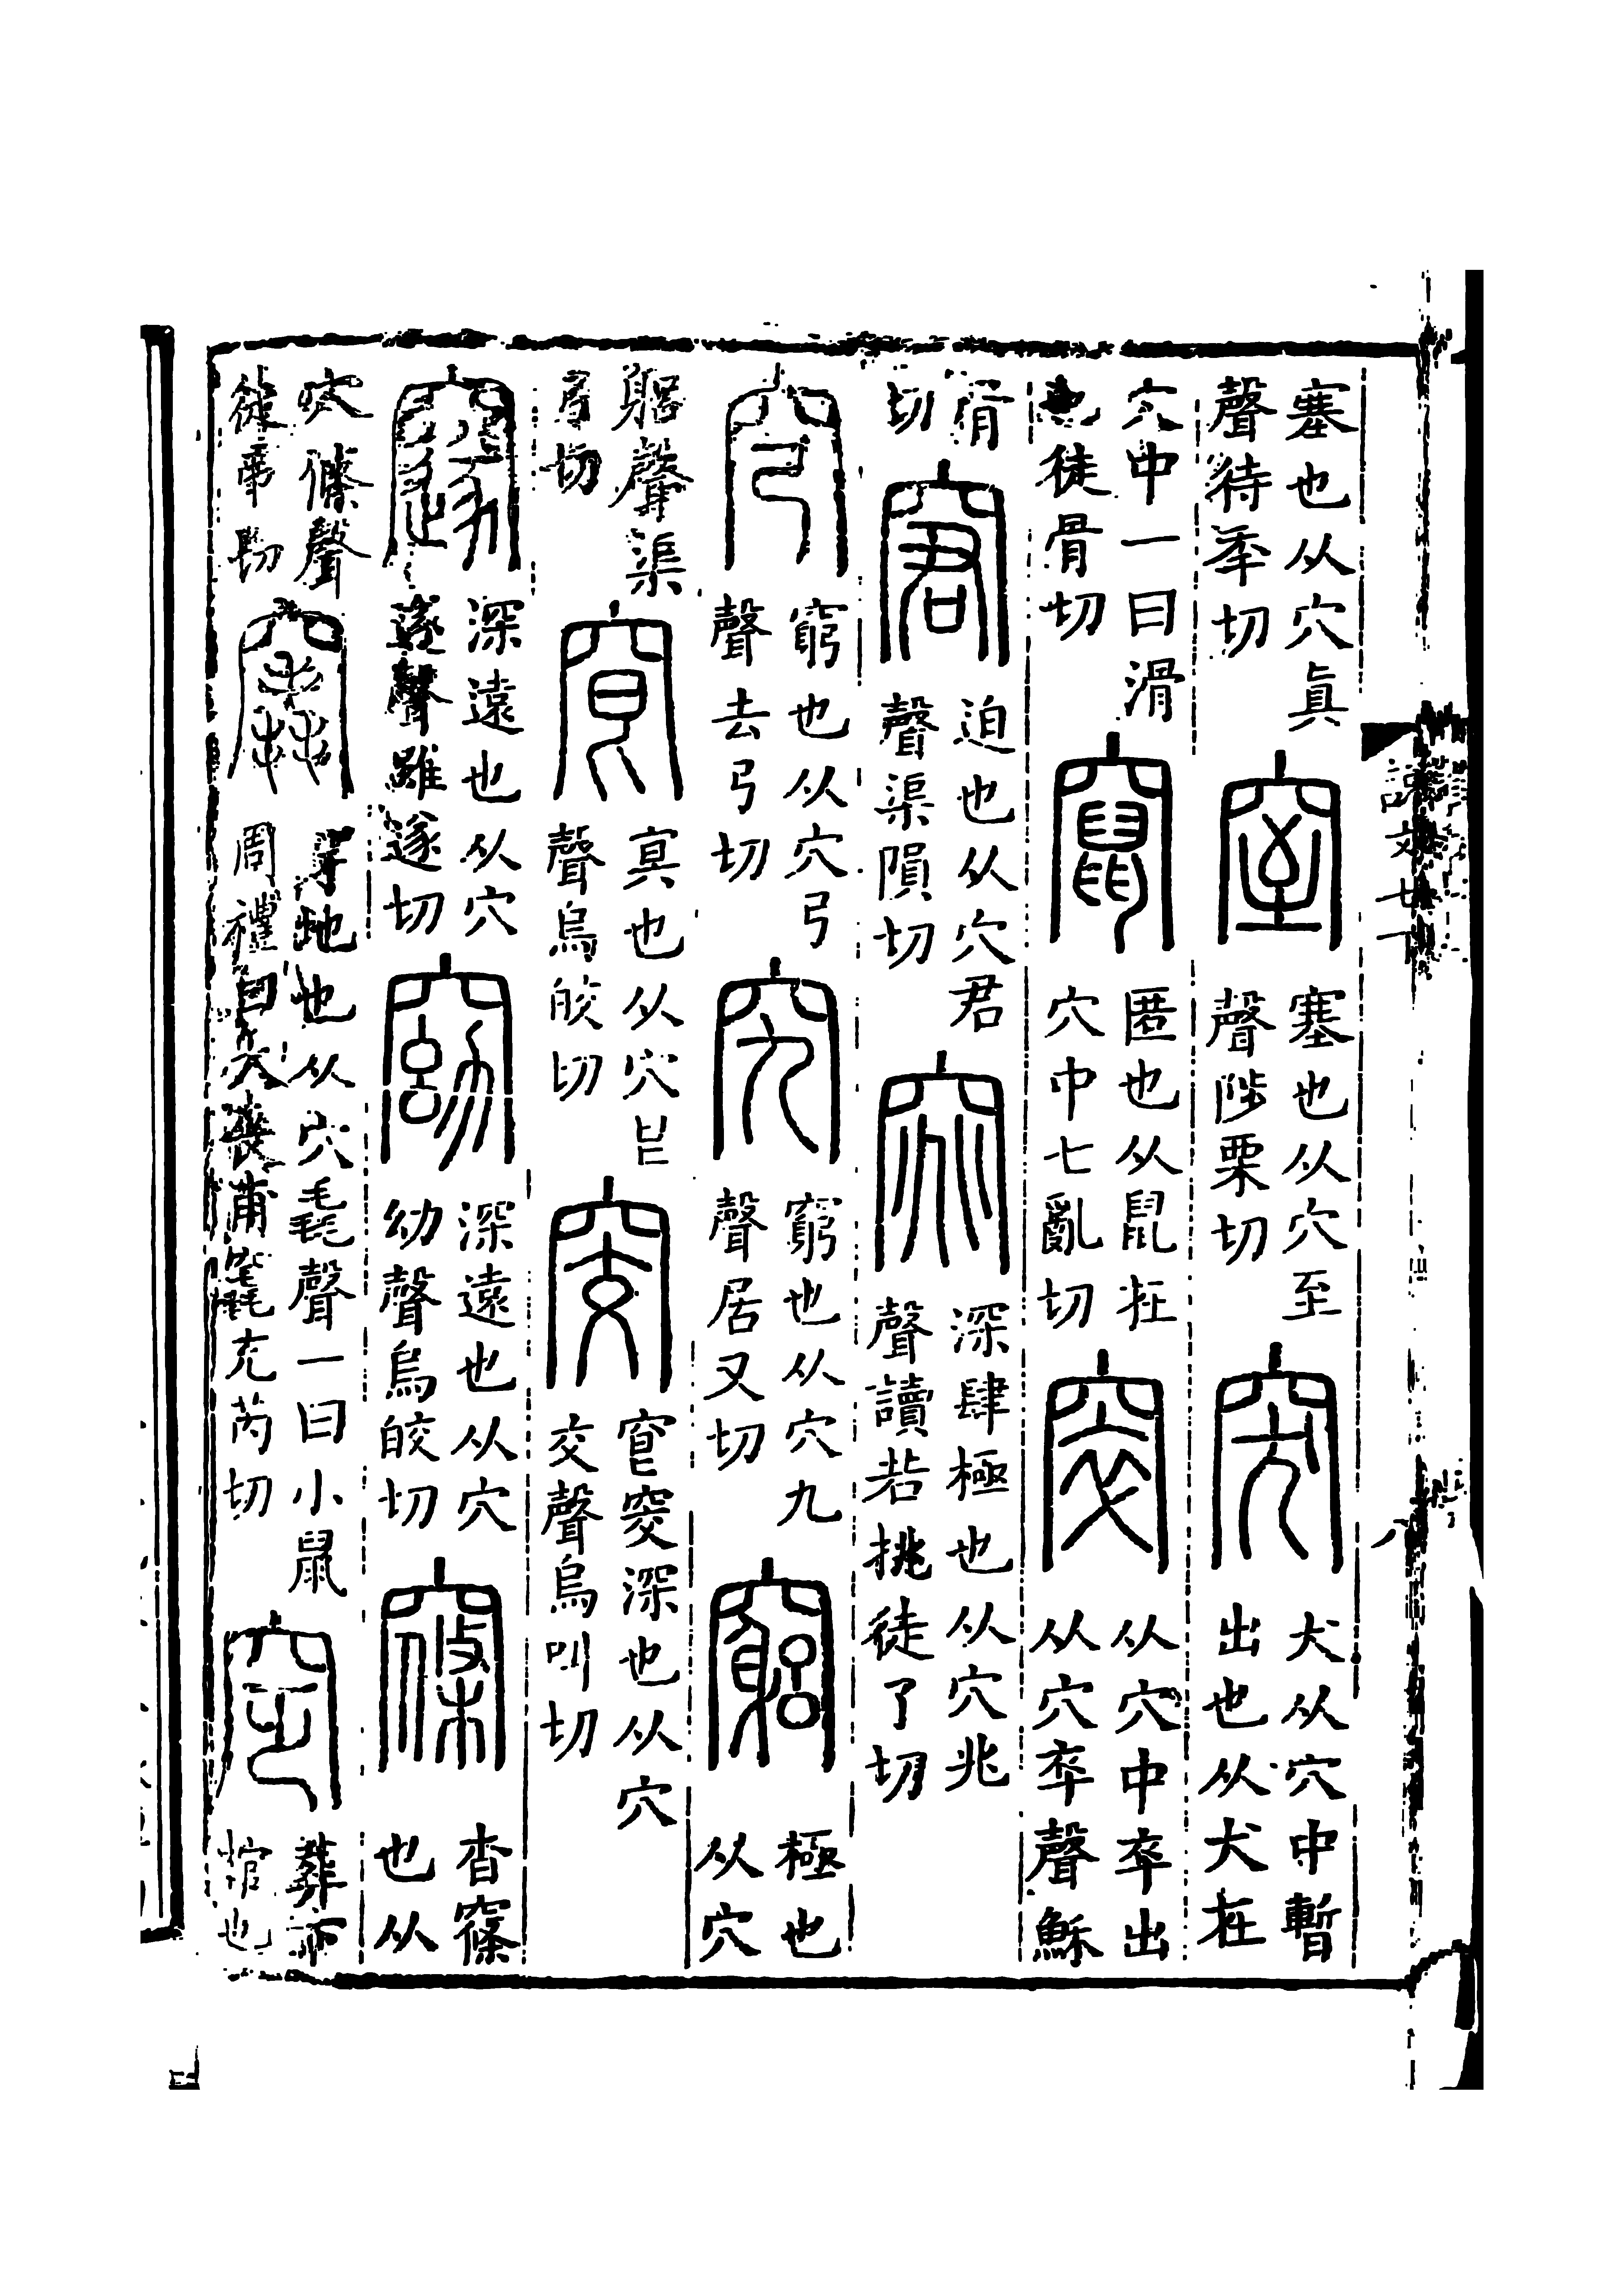 説文七下
八
塞也从穴真聲待秊切窒塞也从穴至聲陟栗切突犬从穴中暫出也从犬在
穴中一曰滑也徒骨切竄匿也从鼠在穴中七亂切窣从穴中卒出从穴卒聲穌
骨切窘迫也从穴君聲渠隕切窕深肆極也从穴兆聲讀若挑徒了切
穹窮也从穴弓聲去弓切究窮也从穴九聲居又切竆極也从穴
躳聲渠弓切冥也从穴㫐聲烏皎切窔窅窔深也从穴交聲烏叫切
邃深遠也从穴遂聲雖遂切窈深遠也从穴幼聲烏皎切窱杳窱也从
穴條聲徒弔切竁穿地也从穴毳聲一曰小鼠周禮曰大喪甫竁充芮切窆葬下棺也